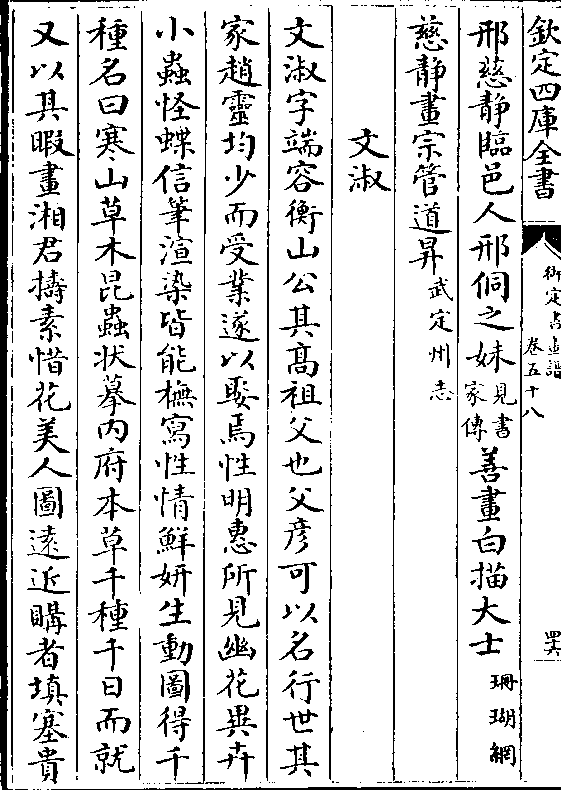 欽定四庫全書
御定書畫譜
卷五十八
四六
邢慈静臨邑人邢侗之妹見書家傳善畫白描大士珊瑚網
慈静畫宗管道昇武定州志
文淑
文淑字端容衡山公其髙祖父也父彦可以名行世其
家趙靈均少而受業遂以娶焉性明惠所見幽花異卉
小蟲怪蝶信筆渲染皆能橅寫性情鮮妍生動圖得千
種名曰寒山草木昆蟲状摹内府本草千種千日而就
又以其暇畫湘君擣素惜花美人圖逺近購者填塞貴